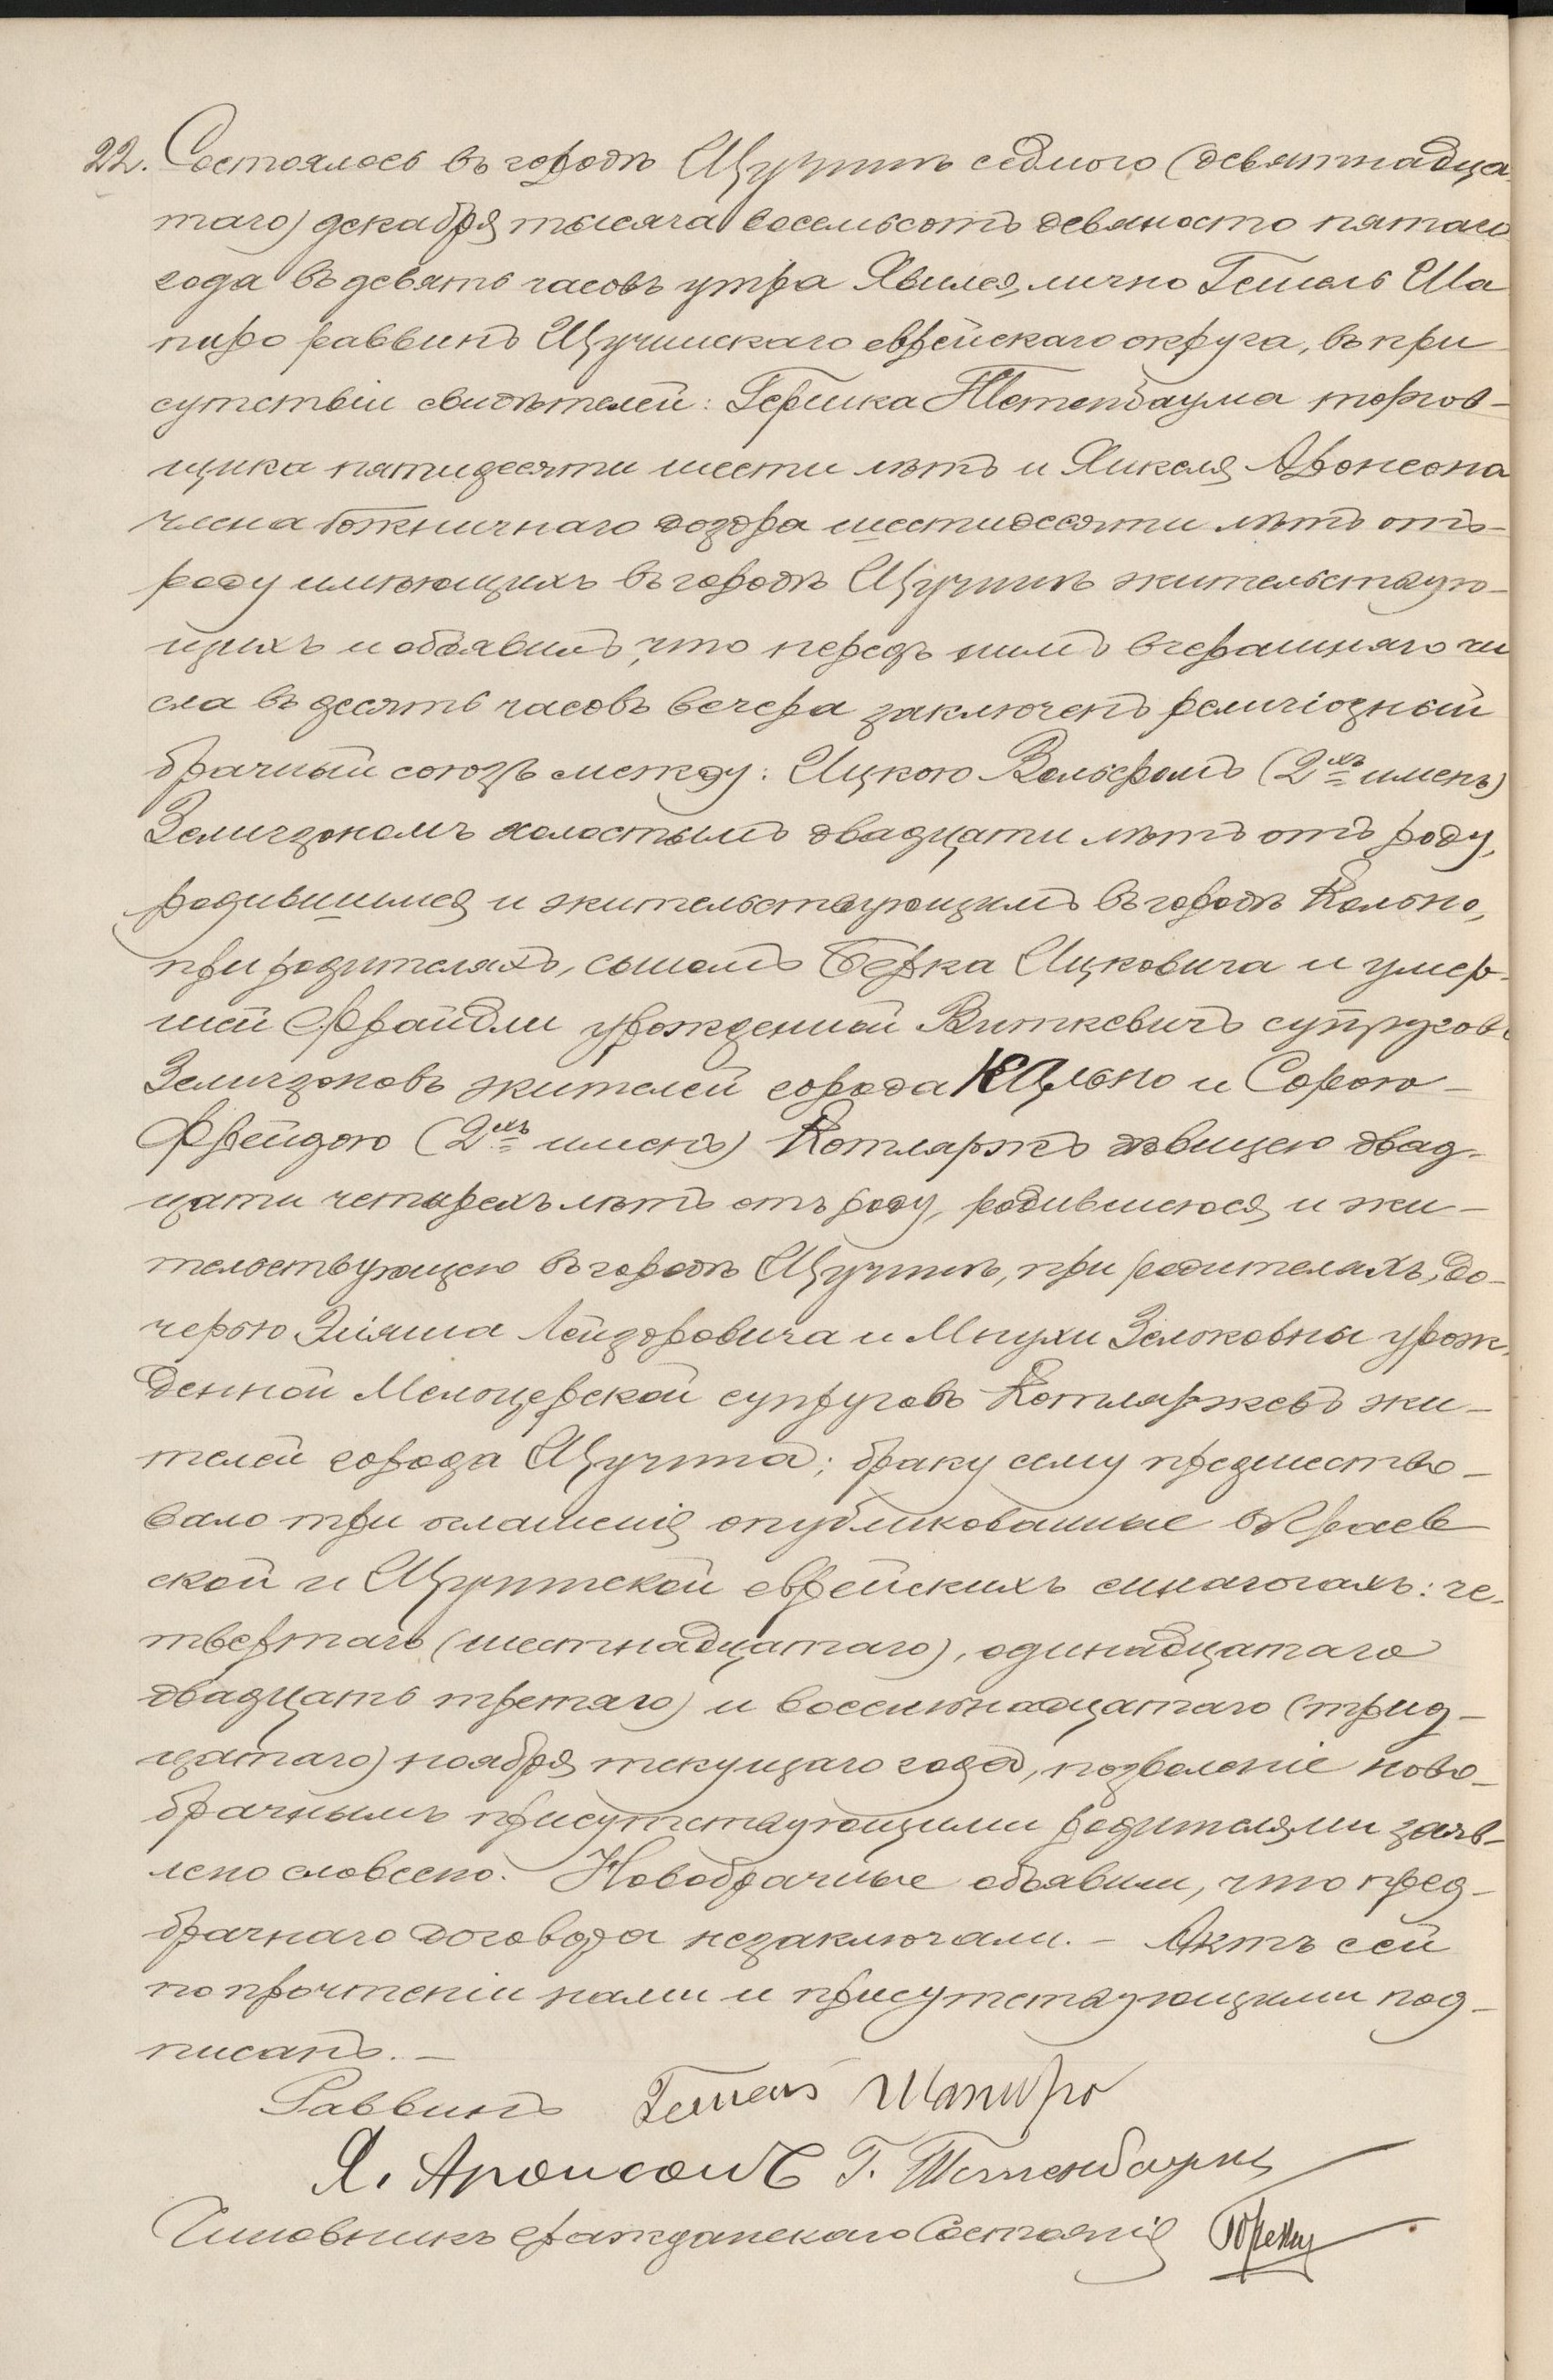 22. Состоялось въ городѣ Щучинѣ седмого (девятнадца
таго) декабря тысяча восемьсотъ девяносто пятаго
года въ девять часовъ утра Явился, лично Гешель Ша
пиро раввинъ Щучинскаго еврейскаго округа, въ при
сутствіи свидѣтелей: Гершка Тетенбаума торгов-
щика пятидесяти шести лѣтъ и Янкеля Аронсона
члена божничнаго дозора шестидесяти лѣтъ отъ-
роду имѣющихъ въ городѣ Щучинѣ жительствую-
щихъ и объявилъ, что передъ нимъ вчерашняго чи
сла въ десять часовъ вечера заключенъ религіозный
брачный союзъ между: Ицкою Вольфомъ (2хъ именъ)
Зелигзономъ холостымъ двадцати лѣтъ отъ роду,
родившимся и жительствующимъ въ городѣ Кольно,
при родителяхъ, сыномъ Берка Ицковича и умер-
шей Фрайдли урожденной Виткевичъ супруговъ
Зелигзоновъ жителей города Кольно и Сорою-
Фрейдою (2хъ именъ) Котляржъ дѣвицею двад-
цати четырехъ лѣтъ отъ роду, родившеюся и жи-
тельствующею въ городѣ Щучинѣ, при родителяхъ, до-
черью Эліяша Лейзоровича и Мнухи Зельковны урож-
денной Мелоцерской супруговъ Котляржевъ жи-
телей города Щучина; браку сему предшество-
вало три оглашенія опубликованные въ Граев
ской и Щучинской еврейскихъ синагогахъ: че-
твертаго (шестнадцатаго), одинадцатаго
двадцать третяго) и восемнадцатаго (трид-
цатаго) ноября текущаго года, позволеніе ново-
брачнымъ присутствующими родителями заяв-
лено словесно. Новобрачные объявили, что пред-
брачнаго договора незаключали. - Актъ сей
по прочтеніи нами и присутствующими под-
писанъ. -
Раввинъ Гешель Шапиро
Я. Аронсонъ Г. Тетенбаумъ
Чиновникъ гражданскаго Состоянія